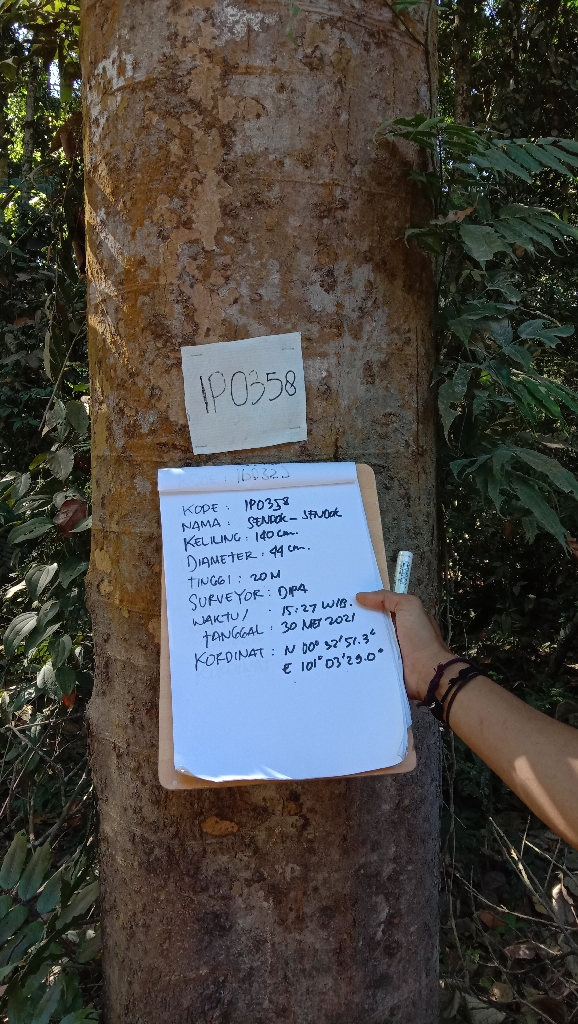 IP0358
KODE : IP0358
NAMA : SENDOK - SENDOK
KELILING : 140 cm.
DIAMETER : 44 cm.
TINGGI : 20 M
SURVEYOR : DIPA
WAKTU / : 15:27 WIB.
TANGGAL : 30 MEI 2021
KORDINAT : N 00° 32' 51.3"
E 101° 03' 29.0"